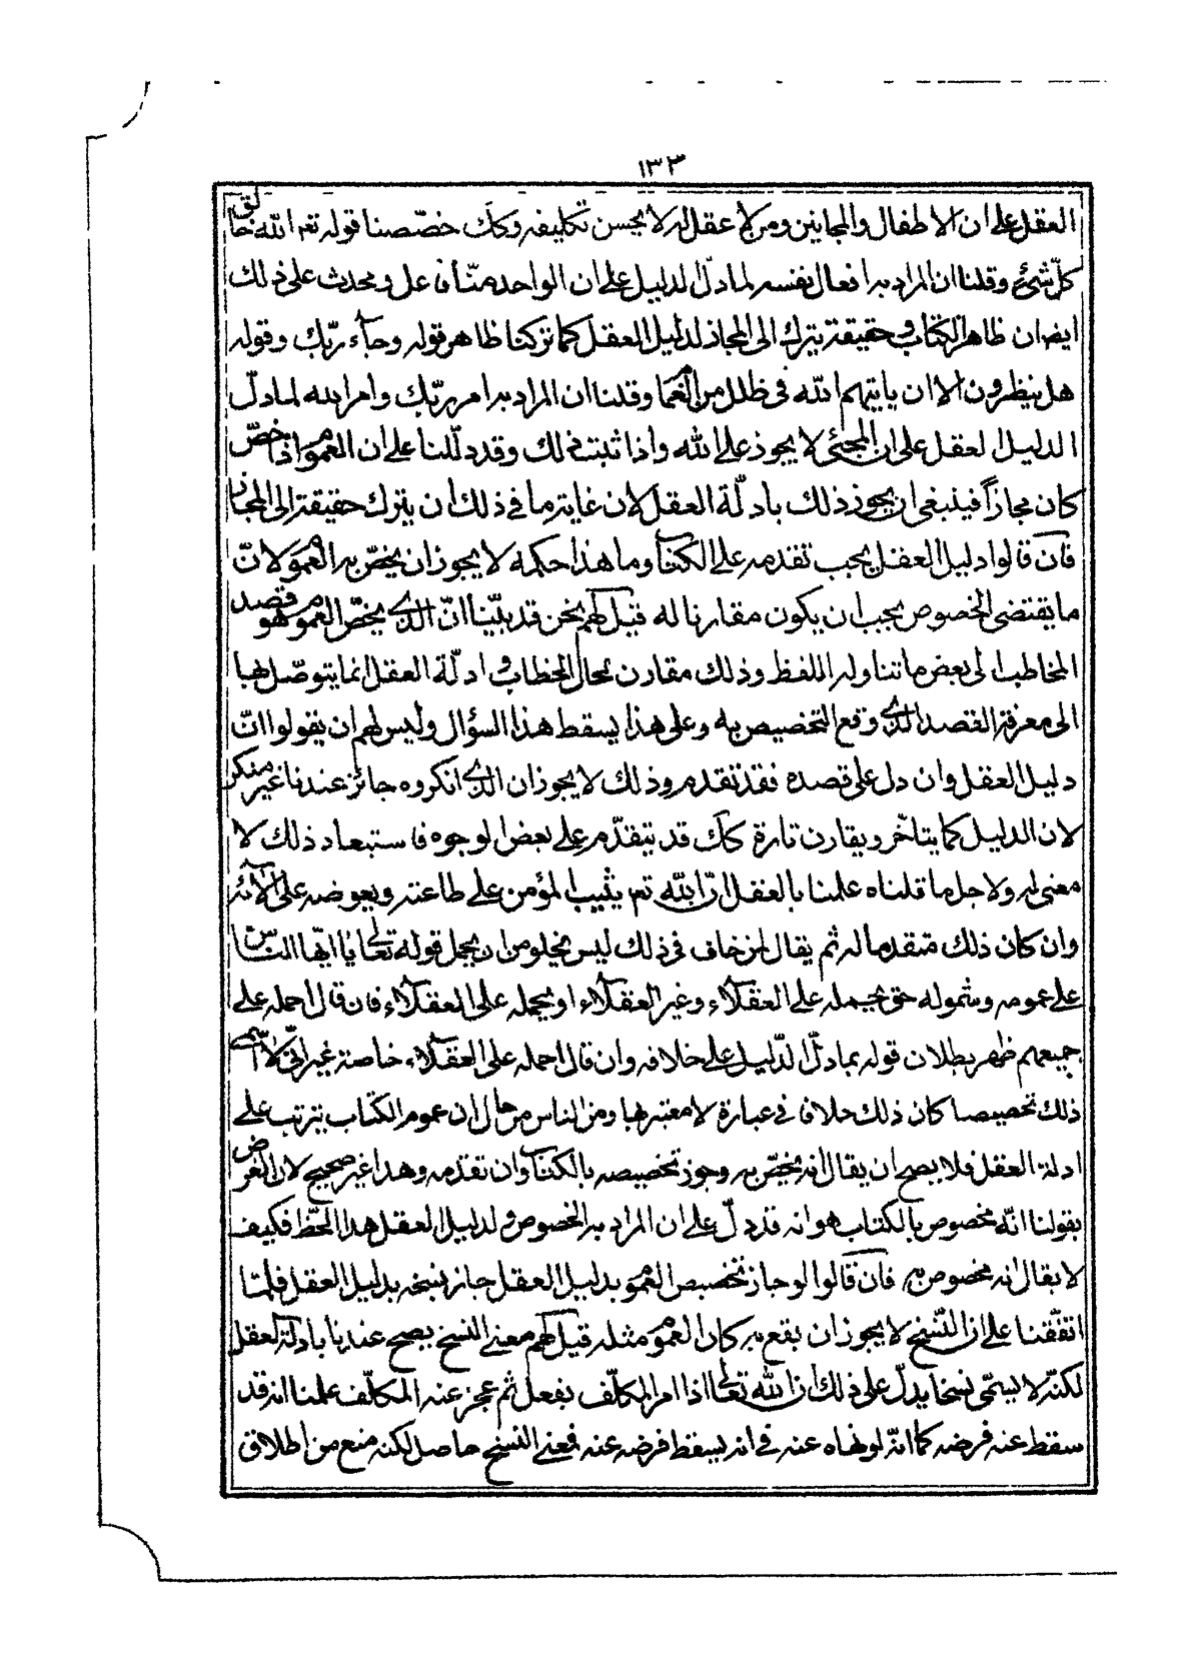 ١٣٣
العقل على ان الاطفال والمجانين ومن لا عقل له لا يحسن تكليفه وكك خصّصنا قوله تعم الله خالق
كلّ شئ وقلنا ان المراد به افعال نفسه لما دلّ الدليل على ان الواحد منّا فاعل ومحدث على ذلك
ايضا ان ظاهر الكتاب وحقيقته يترك الى المجاز لدليل العقل كما تركنا ظاهر قوله وجآء ربّك وقوله
هل ينظرون الا ان ياتيهم الله فى ظلل من الغمام وقلنا ان المراد به امر ربّك وامر الله لما دلّ
الدليل العقل على ان المجئى لا يجوز على الله واذا ثبت ذلك وقد دلّلنا على ان العموم اذا خصّ
كان مجازاً فينبغى ان يجوز ذلك بادلّة العقل لان غاية ما فى ذلك ان يترك حقيقته الى المجاز
فان قالوا دليل العقل يجب تقدمه على الكتاب وما هذا حكمه لا يجوز ان يخصّ به العموم لانّ
ما يقتضى الخصوص يجب ان يكون مقارنا له قيل لهم نحن قد بيّنا انّ الذى يخصّ العموم هو قصد
المخاطب الى بعض ما تناوله اللفظ وذلك مقارن لحال الخطاب وادلّة العقل انما يتوصّل بها
الى معرفة القصد الذى وقع التخصيص به وعلى هذا يسقط هذا السؤال وليس لهم ان يقولوا انّ
دليل العقل وان دل على قصده فقد تقدم وذلك لا يجوز ان الذى انكروه جائز عندنا غير منكر
لان الدليل كما يتاخّر ويقارن تارة كك قد يتقدّم على بعض الوجوه فاستبعاد ذلك لا
معنى له ولاجل ما قلناه علمنا بالعقل انّ الله تعم يثيب المؤمن على طاعته ويعوضه على الآمه
وان كان ذلك متقدما له ثم يقال لمن خاف فى ذلك ليس يخلو من ان يحمل قوله تعالى يا ايّها النّاس
على عمومه وشموله حتى يحمله على العقلاء وغير العقلاء او يحمله على العقلاء فان قال احمله على
جميعهم ظهر بطلان قوله بما دلّ الدّليل على خلافه وان قال احمله على العقلاء خاصة غير انّى لا اسمّى
ذلك تخصيصا كان ذلك خلافا فى عبارة لا معتبر بها ومن الناس من قال ان عموم الكتاب يترتب على
ادلة العقل فلا يصح ان يقال انه يخصّ به وجوز تخصيصه بالكتاب وان تقدمه وهذا غير صحيح لان الغرض
بقولنا انّه مخصوص بالكتاب هو انه قد دلّ على ان المراد به الخصوص ولدليل العقل هذا الحظّ فكيف
لا يقال انه مخصوص به فان قالوا لو جاز تخصيص العموم بدليل العقل جاز نسخه بدليل العقل فلمّا
اتفّقنا على ان النّسخ لا يجوز ان يقع به كان العموم مثله قيل لهم معنى النسخ يصح عندنا بادلّة العقل
لكنّه لا يسمّى نسخا يدلّ على ذلك ان الله تعالى اذا امر المكلّف بفعل ثم عجز عنه المكلّف علمنا انه قد
سقط عنه فرضه كما انّه لو نهاه عنه فى انه يسقط فرضه عنه فمعنى النسخ حاصل لكنه منع من اطلاق